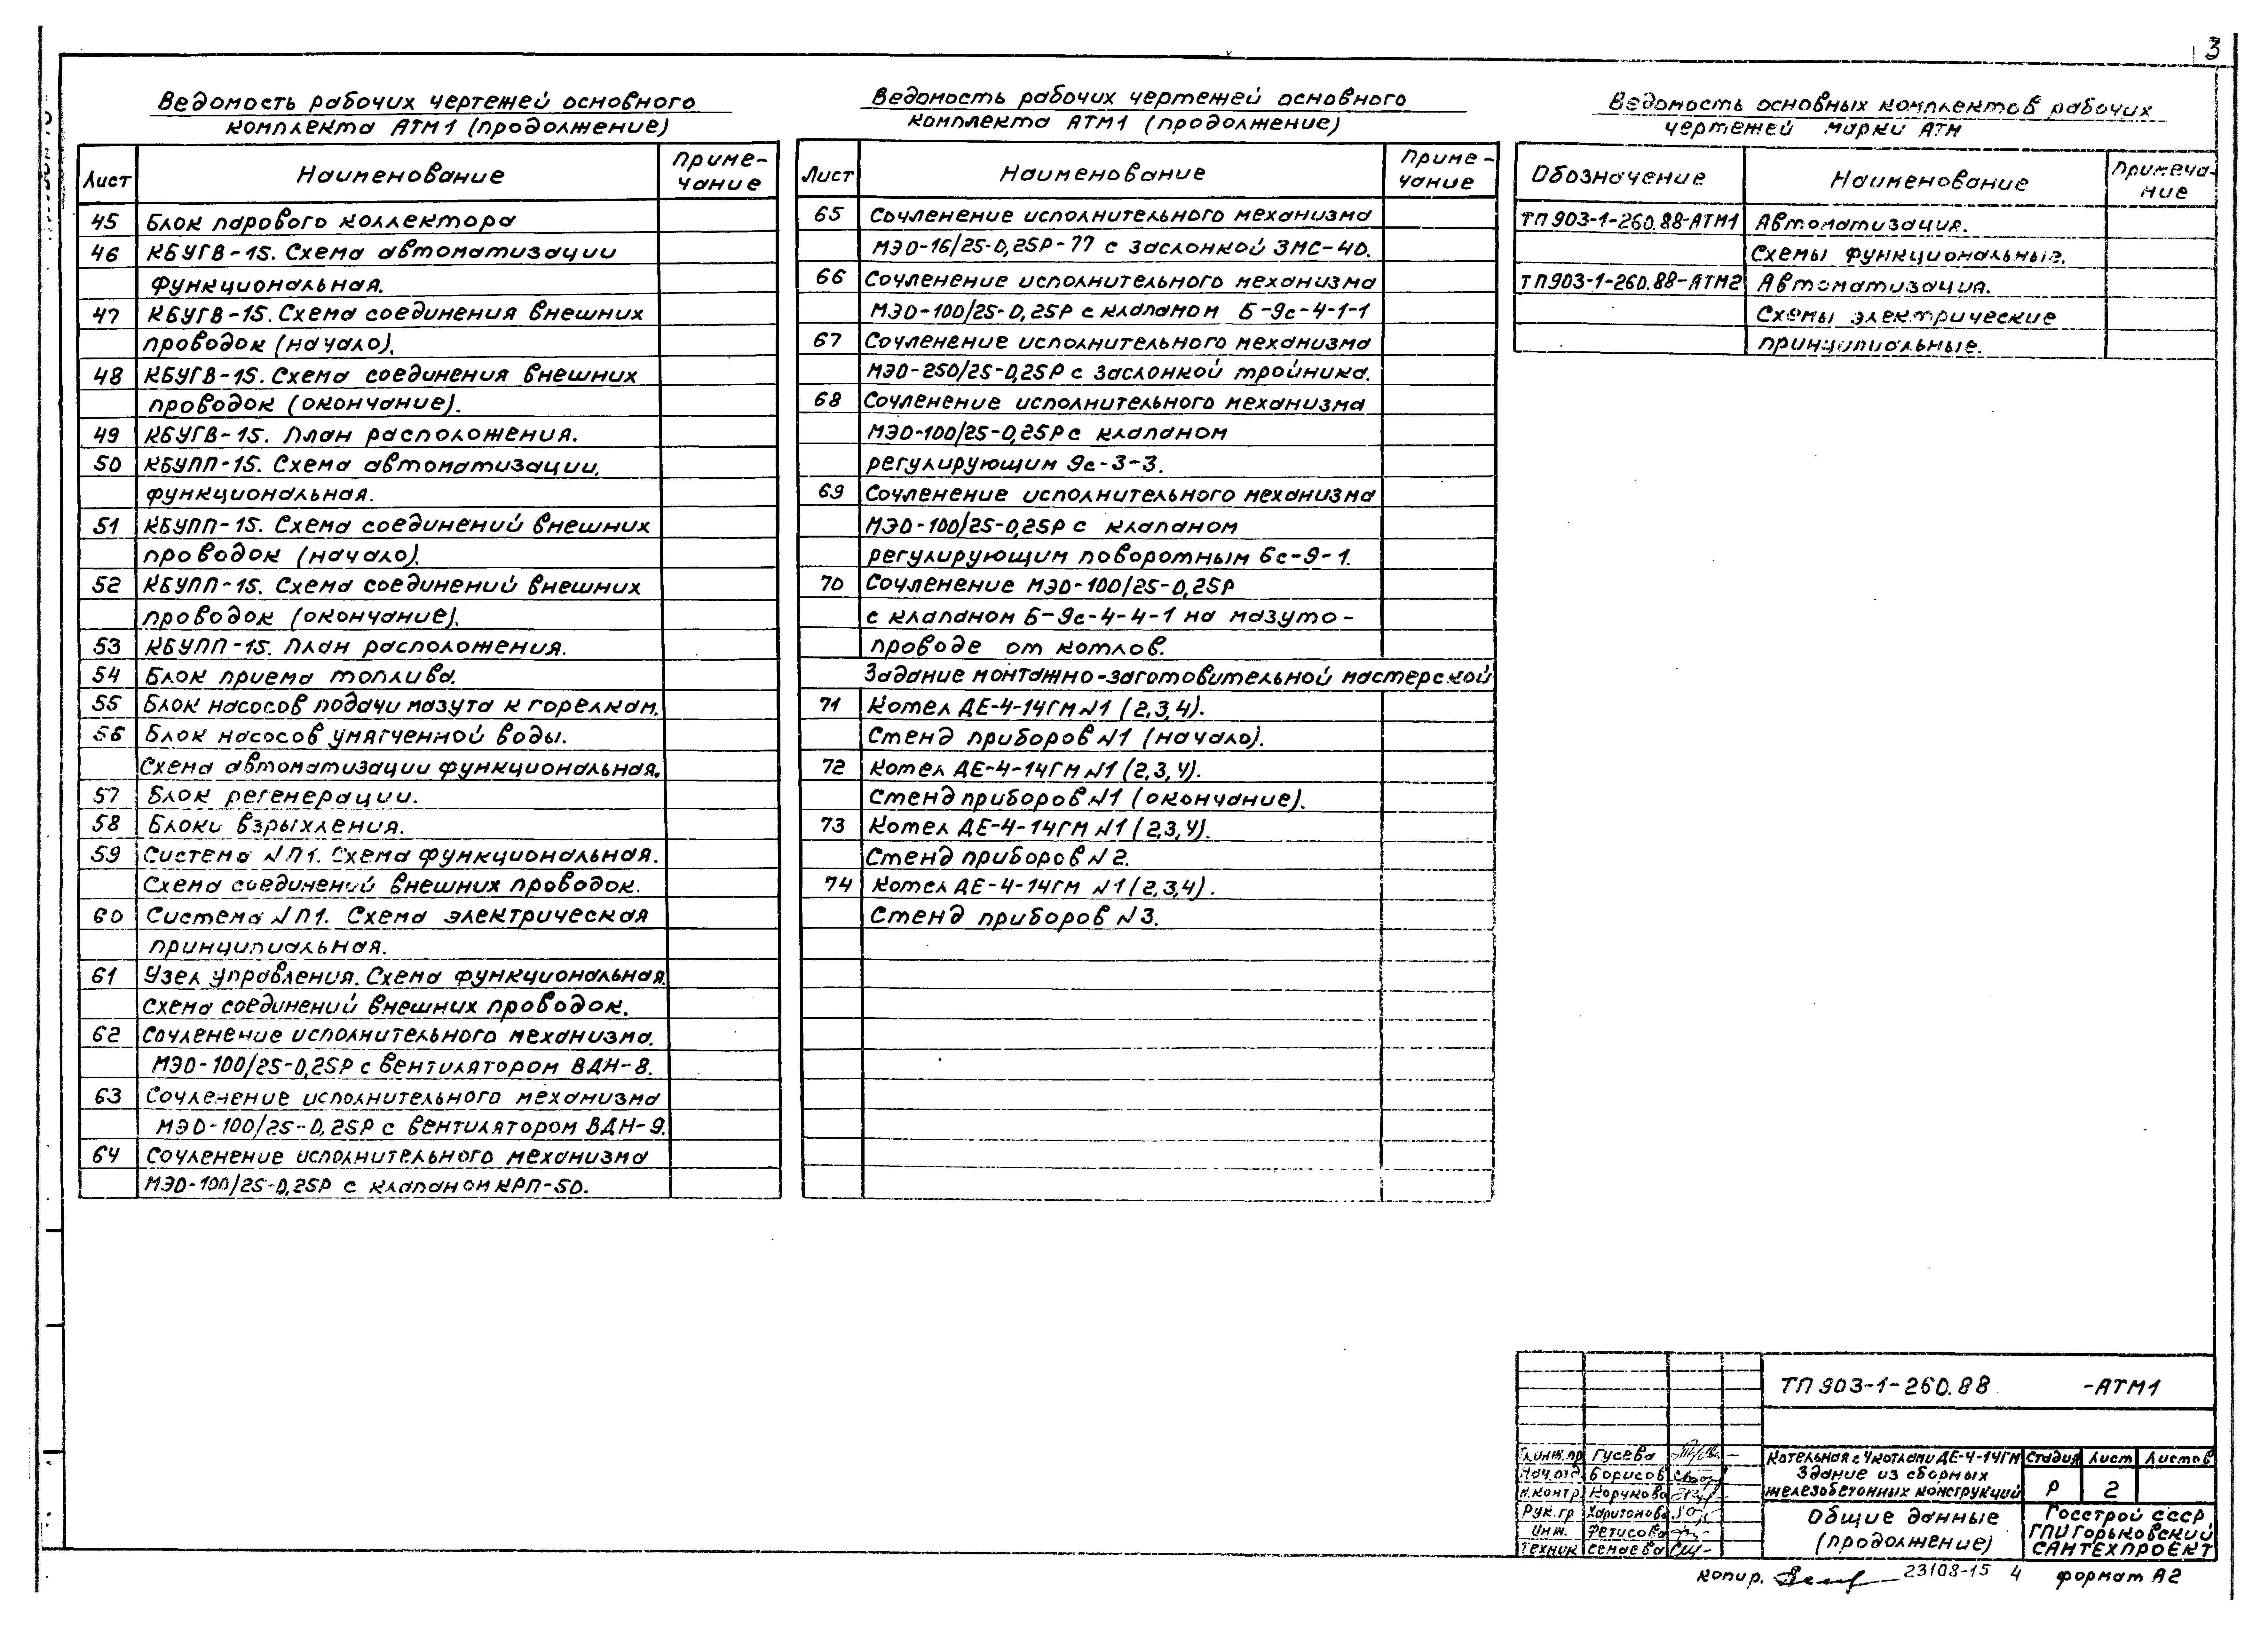 3
Ведомость рабочих чертежей основного
комплекта АТМ1 (продолжение)
Лист Наименование Приме-
чание
45 Блок парового коллектора
46 КБУГВ-15. Схема автоматизации
функциональная.
47 КБУГВ-15. Схема соединения внешних
проводок (начало).
48 КБУГВ-15. Схема соединения внешних
проводок (окончание).
49 КБУГВ-15. План расположения.
50 КБУПП-15. Схема автоматизации.
функциональная.
51 КБУПП-15. Схема соединений внешних
проводок (начало).
52 КБУПП-15. Схема соединений внешних
проводок (окончание).
53 КБУПП-15. План расположения.
54 Блок приема топлива.
55 Блок насосов подачи мазута к горелкам.
56 Блок насосов умягченной воды.
Схема автоматизации функциональная.
57 Блок регенерации.
58 Блоки взрыхления.
59 Система №П1. Схема функциональная.
Схема соединений внешних проводок.
60 Система №П1. Схема электрическая
принципиальная.
61 Узел управления. Схема функциональная.
Схема соединений внешних проводок.
62 Сочленение исполнительного механизма.
МЭО-100/25-0,25Р с вентилятором ВДН-8.
63 Сочленение исполнительного механизма
МЭО-100/25-0,25Р с вентилятором ВДН-9.
64 Сочленение исполнительного механизма
МЭО-100/25-0,25Р с клапаном КРП-50.
Ведомость рабочих чертежей основного
комплекта АТМ1 (продолжение)
Лист Наименование Приме-
чание
65 Сочленение исполнительного механизма
МЭО-16/25-0,25Р-77 с заслонкой ЗМС-40.
66 Сочленение исполнительного механизма
МЭО-100/25-0,25Р с клапаном Б-9с-4-1-1
67 Сочленение исполнительного механизма
МЭО-250/25-0,25Р с заслонкой тройника.
68 Сочленение исполнительного механизма
МЭО-100/25-0,25Р с клапаном
регулирующим 9с-3-3.
69 Сочленение исполнительного механизма
МЭО-100/25-0,25Р с клапаном
регулирующим поворотным 6с-9-1.
70 Сочленение МЭО-100/25-0,25Р
с клапаном Б-9с-4-4-1 на мазуто-
проводе от котлов.
Задание монтажно-заготовительной мастерской
71 Котел ДЕ-4-14ГМ №1 (2,3,4).
Стенд приборов №1 (начало).
72 Котел ДЕ-4-14ГМ №1 (2,3,4).
Стенд приборов №1 (окончание).
73 Котел ДЕ-4-14ГМ №1 (2,3,4).
Стенд приборов №2.
74 Котел ДЕ-4-14ГМ №1 (2,3,4).
Стенд приборов №3.
Ведомость основных комплектов рабочих
чертежей марки АТМ
Обозначение Наименование Примеча-
ние
ТП903-1-260.88-АТМ1 Автоматизация.
Схемы функциональные.
ТП903-1-260.88-АТМ2 Автоматизация.
Схемы электрические
принципиальные.
ТП 903-1-260.88 -АТМ1
Гл.инж.пр Гусева
Нач.отд Борисов
Н.контр. Корукова
Рук.гр Харитонова
Инж. Фетисова
Техник Семаева
Котельная с 4 котлами ДЕ-4-14ГМ
Здание из сборных
железобетонных конструкций
Стадия Лист Листов
Р 2
Общие данные
(продолжение)
Госстрой СССР
ГПИ Горьковский
САНТЕХПРОЕКТ
копир. 23108-15 4 формат А2